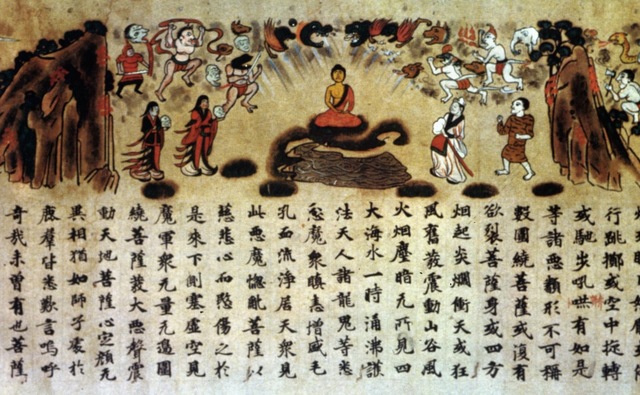 行跳擲或空中旋轉
或馳步吼哄有如是
等諸惡類形不可稱
數圍繞菩薩或復有
欲裂菩薩身或四方
烟起炎爛衝天或狂
風奮發震動山谷風
火烟塵暗无所見四
大海水一時涌沸護
法天人諸龍鬼等悉
忿魔衆瞋恚增盛毛
孔血流淨居天衆見
此惡魔惱亂菩薩以
慈悲心而愍傷之於
是來下側塞虛空見
魔軍衆无量无邊圍
繞菩薩發大惡聲震
動天地菩薩心定顏无
異相猶如師子處於
鹿羣皆悉歎言嗚呼
奇哉未曾有也菩薩